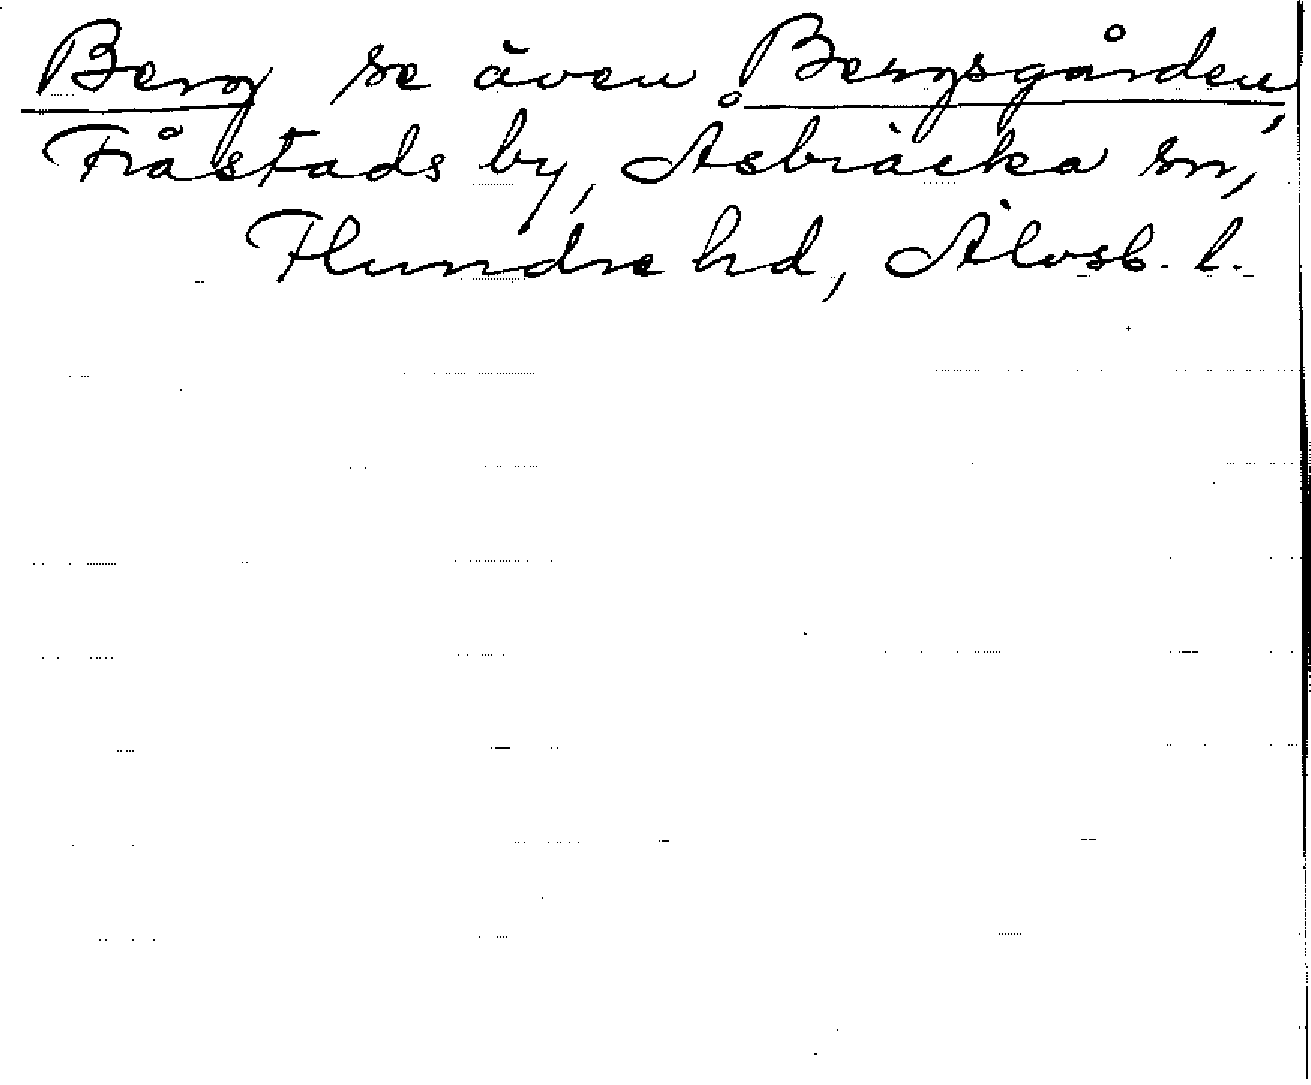 Berg se även Bergsgården,
Fråstads by, Åsbräcka sn,
Flundre hd, Älvsb. l.